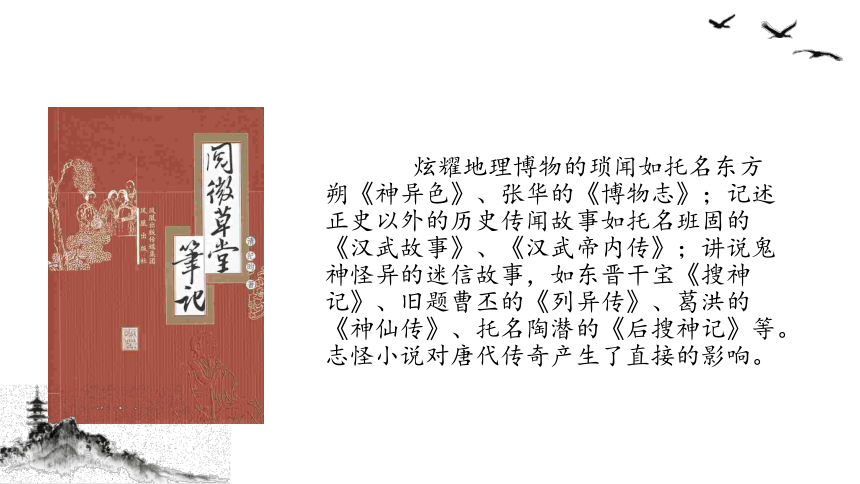 阅微草堂
筆记
清 纪昀 著
凤凰出版传媒集团
凤凰出版社
炫耀地理博物的琐闻如托名东方
朔《神异色》、张华的《博物志》；记述
正史以外的历史传闻故事如托名班固的
《汉武故事》、《汉武帝内传》；讲说鬼
神怪异的迷信故事，如东晋干宝《搜神
记》、旧题曹丕的《列异传》、葛洪的
《神仙传》、托名陶潜的《后搜神记》等。
志怪小说对唐代传奇产生了直接的影响。